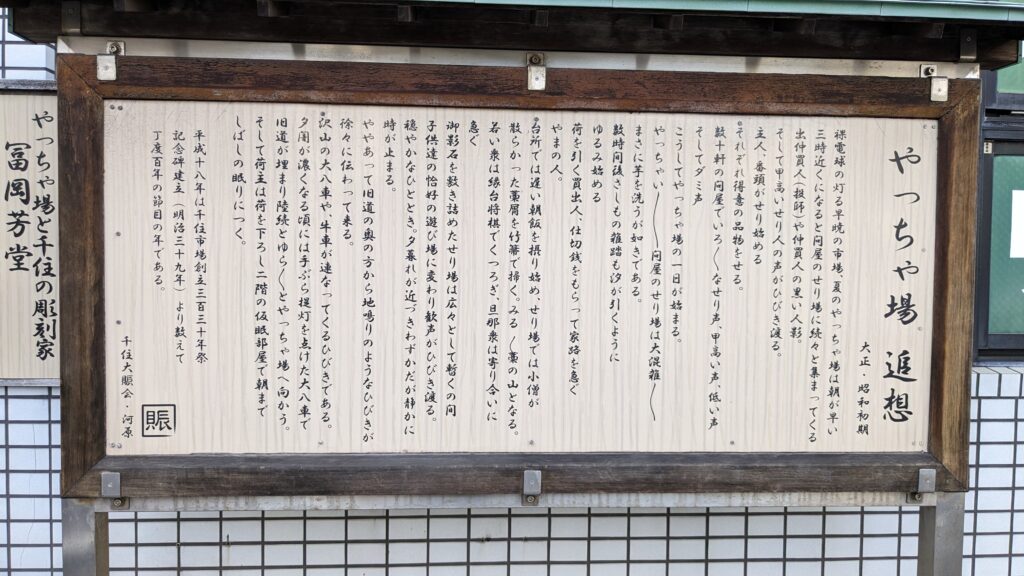 やっちゃ場 追想
大正・昭和初期
裸電球の灯る早暁の市場、夏のやっちゃ場は朝が早い
三時近くになると問屋のせり場に続々と集まってくる
出仲買人(投師)や仲買人の黒い人影。
そして甲高いせり人の声がひびき渡る。
主人、番頭がせり始める
それぞれ得意の品物をせる。
数十軒の問屋でいろ〱なせり声、甲高い声、低い声
そしてダミ声
こうしてやっちゃ場の一日が始まる。
やっちゃい〱〱問屋のせり場は大混雑〱
まさに芋を洗うが如きである。
数時間後さしもの雑踏も汐が引くように
ゆるみ始める
荷を引く買出人、仕切銭をもらって家路を急ぐ
やまの人。
台所では遅い朝飯を摂り始め、せり場では小僧が
散らかった藁屑を竹箒で掃く。みる〱藁の山となる。
若い衆は縁台将棋でくつろぎ、旦那衆は寄り合いに
急ぐ
御影石を敷き詰めたせり場は広々として暫くの間
子供達の恰好の遊び場に変わり歓声がひびき渡る。
穏やかなひととき。夕暮れが近づきわずかだが静かに
時が止まる。
ややあって旧道の奥の方から地鳴りのようなひびきが
徐々に伝わって来る。
沢山の大八車や、牛車が連なってくるひびきである。
夕闇が濃くなる頃には手ぶら提灯を点けた大八車で
旧道が埋まり陸続とゆら〱とやっちゃ場へ向かう。
そして荷主は荷を下ろし二階の仮眠部屋で朝まで
しばしの眠りにつく。
平成十八年は千住市場創立三百三十年祭
記念碑建立(明治三十九年)より数えて
丁度百年の節目の年である。
千住大賑会・河原
賑
やっちゃ場と千住の彫刻家
冨岡芳堂